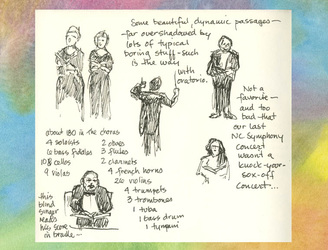 Some beautiful, dynamic passages—
far overshadowed by
lots of typical
boring stuff - such
is the way
with
oratorio.
Not a
favorite —
and too
bad that
our last
NC Symphony
concert
wasn't a
knock-your-
sox-off
concert...
about 180 in the chorus
4 soloists
6 bass fiddles
10 cellos
9 violas
2 oboes
3 flutes
2 clarinets
4 french horns
26 violins
4 trumpets
3 trombones
1 tuba
1 bass drum
1 tympani
this
blind
singer
reads
his score
in braille —